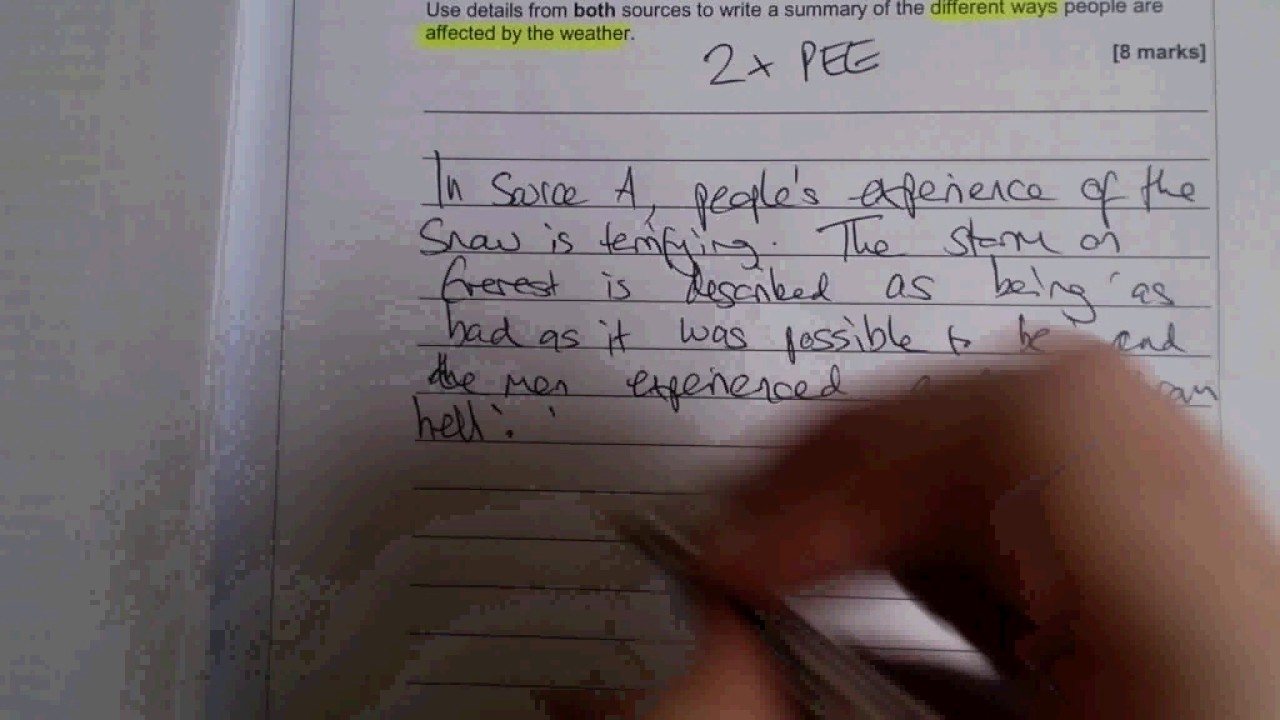 Use details from both sources to write a summary of the different ways people are
affected by the weather.
[8 marks]
2x PEE
In Source A, people's experience of the
Snow is terrifying. The storm on
Everest is described as being 'as
bad as it was possible to be' and
the men experienced
hell'.